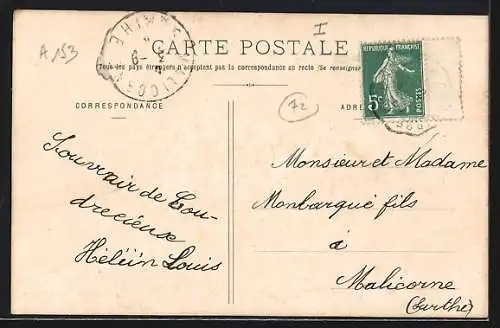 A 153
I
CARTE POSTALE
Tous les pays étrangers n'acceptent pas la correspondance au recto (Se renseigner
CORRESPONDANCE
72
ADRE
REPUBLIQUE FRANÇAISE
5c
POSTES
Souvenir de Cou-
drecieux
Héleïin Louis
Monsieur et Madame
Monbarqué fils
à
Malicorne
(Sarthe)